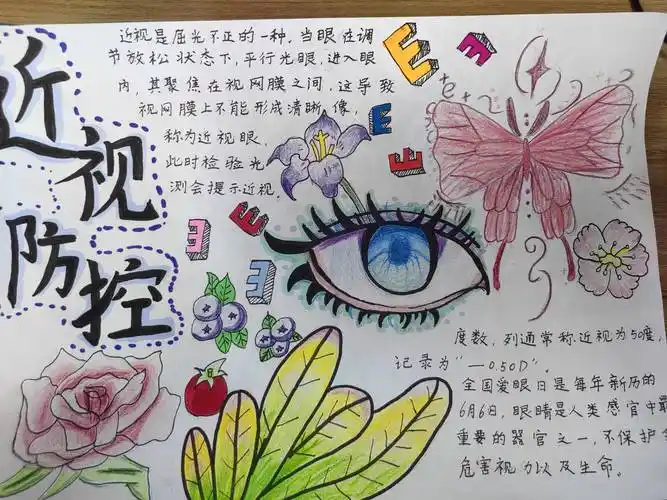 近视防控
近视是屈光不正的一种，当眼在调
节放松状态下，平行光眼，进入眼
内，其聚焦在视网膜之间，这导致
视网膜上不能形成清晰像，
称为近视眼，
此时检验光
测会提示近视。
E
E
E
E
E
E
E
度数，列通常称近视为50度，
记录为“—0.50D”。
全国爱眼日是每年新历的
6月6日，眼睛是人类感官中最
重要的器官之一，不保护会
危害视力以及生命。